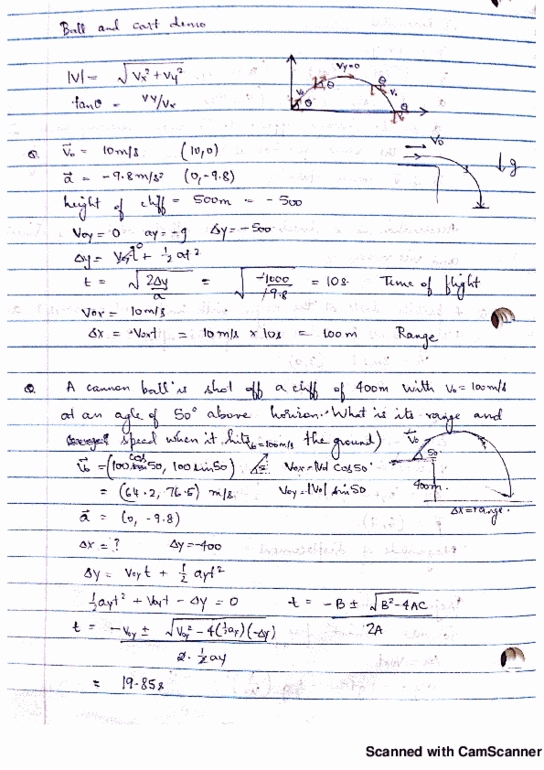 Ball and cart demo
|V| = √Vx² + Vy²
tanθ = Vy/Vx
Vy=0
V₀
θ
θ
V₀
θ
Q. V⃗₀ = 10m/s (10,0)
V₀
a⃗ = -9.8m/s² (0,-9.8)
↓g
height of cliff = 500m = -500
V₀y = 0 ay = -g Δy = -500
Δy = V₀yt⁰ + ½ at²
t = √2Δy/a = √-1000/-9.8 = 10s Time of flight
V₀x = 10m/s
Δx = V₀xt = 10m/s × 10s = 100m Range
Q. A cannon ball is shot off a cliff of 400m with V₀ = 100m/s
at an agle of 50° above horizon. What is its range and
speed when it hits the ground)
V₀=100m/s
V⃗₀
50
400m
Δx = range
V⃗₀ = (100cos50, 100sin50) V₀x = |V₀| cos50
= (64.2, 76.6) m/s V₀y = |V₀| sin50
a⃗ = (0, -9.8)
Δx = ? Δy = -400
Δy = V₀yt + ½ ayt²
½ayt² + V₀yt - Δy = 0 t = -B ± √B²-4AC / 2A
t = -V₀y ± √V₀y² - 4(½ay)(-Δy) / 2·½ay
= 19.85s
Scanned with CamScanner